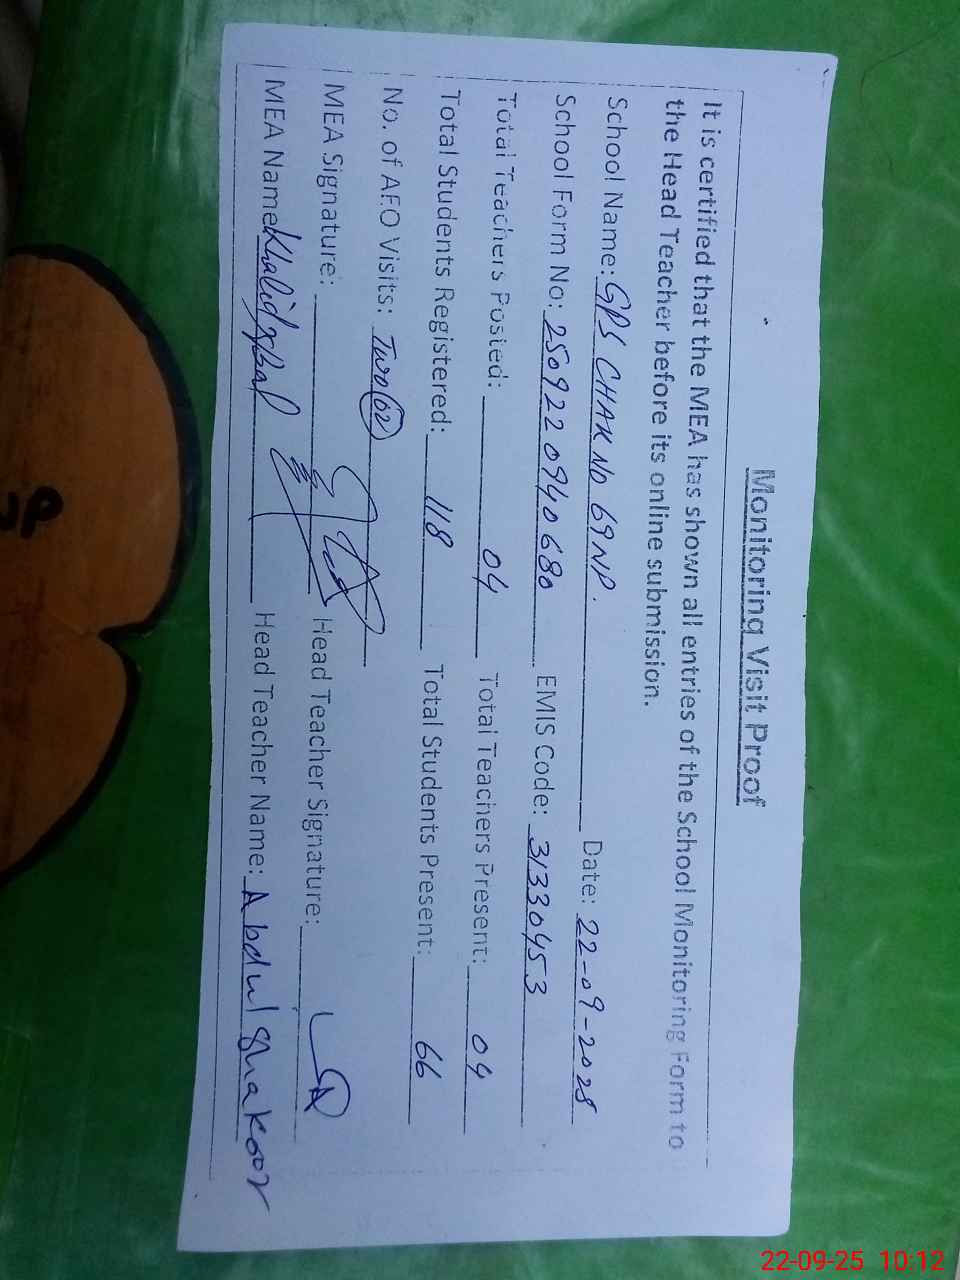 Monitoring Visit Proof
It is certified that the MEA has shown all entries of the School Monitoring Form to
the Head Teacher before its online submission.
School Name: GPS CHAK No 69 NP. Date: 22-09-2025
School Form No: 250922 0940680 EMIS Code: 31330453
Total Teachers Posted: 04 Total Teachers Present: 04
Total Students Registered: 118 Total Students Present: 66
No. of AEO Visits: Two (02)
MEA Signature: Head Teacher Signature:
MEA Name Khalid Iqbal Head Teacher Name: Abdul Shakoor
UP
22-09-25 10:12